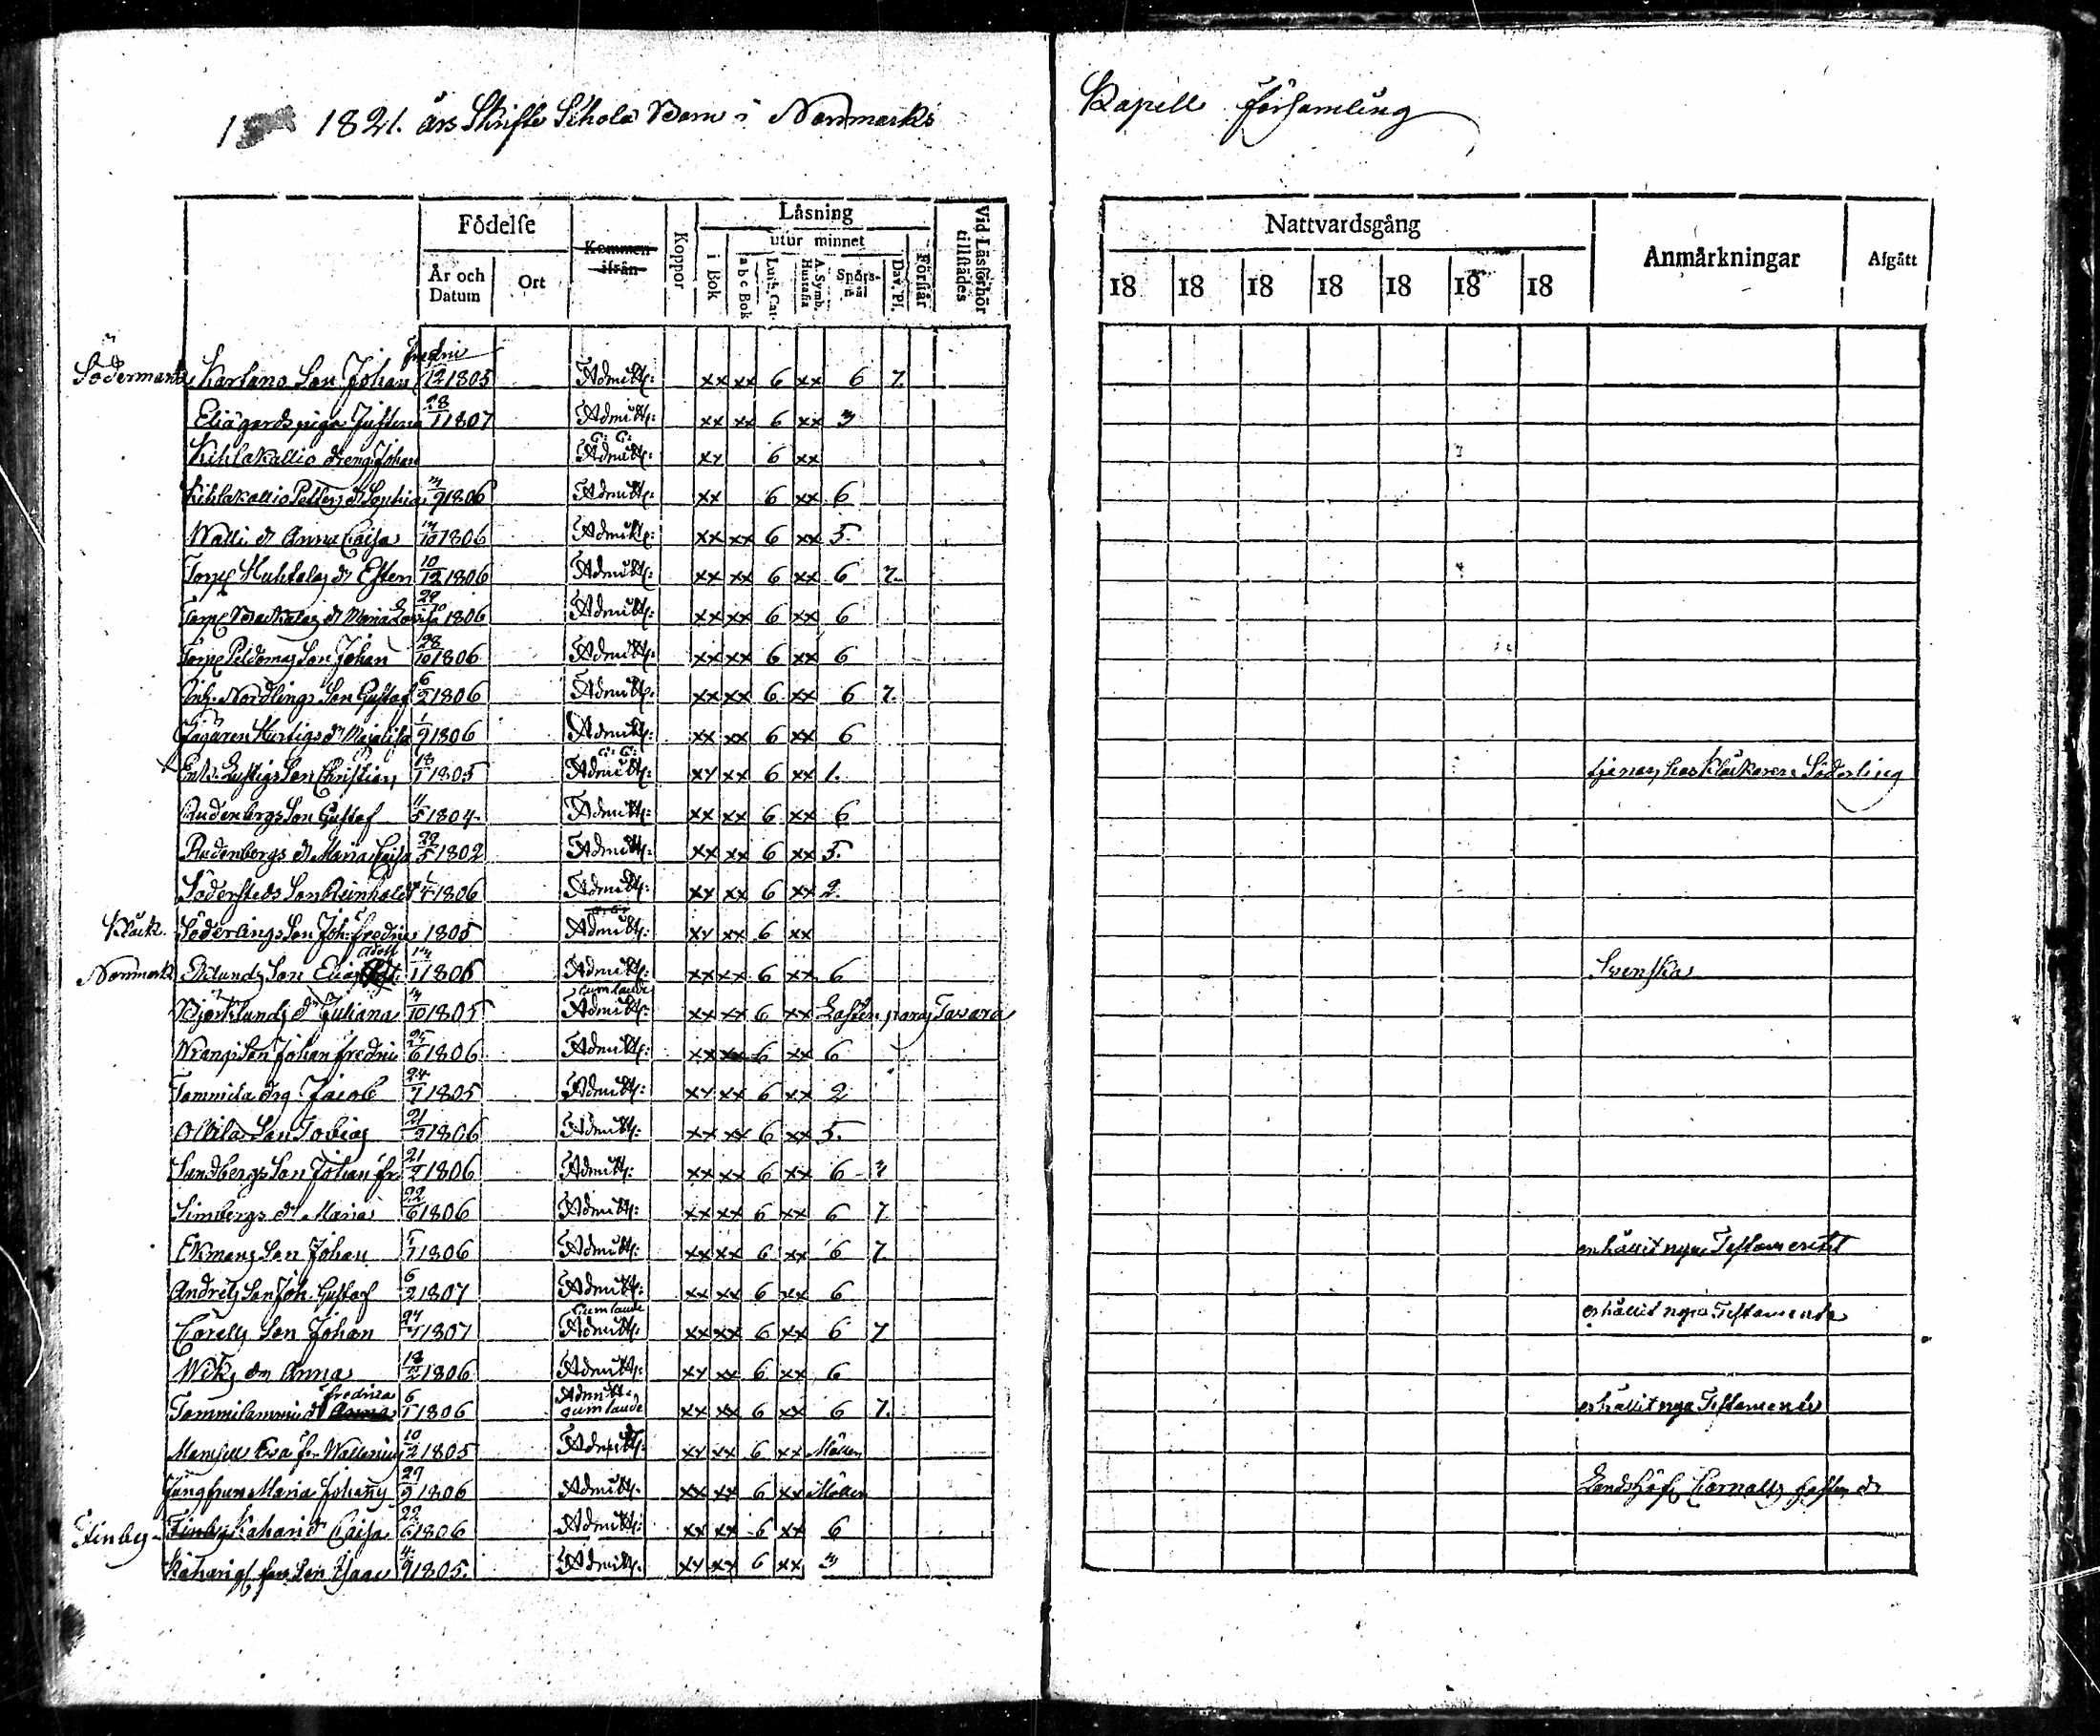 1821. års Skrifte Schola Barn i Normarks
Kapell Församling
Födelse
År och Datum
Ort
Kommen ifrån
Koppor
Läsning
i Bok
utur minnet
a b c Bok
Luth. Cat.
A. Symb. Hustafla
Spörsmål
Dav. Ps.
Förstår
Vid Läsförhör tillstädes
Nattvardsgång
18 18 18 18 18 18 18
Anmärkningar
Afgått
Fredric
Södermark Karlano Son Johan 12 1805 Admitt: xx xx 6 xx 6 7.
Eliägards piga Justina 28/1 1807 Admitt: xx xx 6 xx 3
Kihlakallio dreng Johan Admitt: xx 6 xx
Kihlakallio Petters dr Sophia 9 1806 Admitt: xx 6 xx 6
Walli dr Anna Caisa 10 1806 Admitt: xx xx 6 xx 5.
Torp Huhtalas dr Esten 10/12 1806 Admitt: xx xx 6 xx 6 7.
Torp dr Maria Lovisa 1806 Admitt: xx xx 6 xx 6
Torp Peldomas Son Johan 28/10 1806 Admitt: xx xx 6 xx 6
Nordlings Son Gustaf 6/2 1806 Admitt: xx xx 6 xx 6 7.
Jägaren Hurtigs dr Majalisa 1/9 1806 Admitt: xx xx 6 xx 6
Enk. Lustigs Son Christian 18/1 1805 Admitt: xx xx 6 xx 1. tjenar hos Klåckaren Söderling
Rudenbergs Son Gustaf 1804 Admitt: xx xx 6 xx 6
Rudenbergs dr Maria Caisa 29/5 1802 Admitt: xx xx 6 xx 5.
Södersteds Son Reinhold 1806 Admitt: xx xx 6 xx 2.
Klåck. Söderlings Son Joh: Fredric 1805 Admitt: xx xx 6 xx
Adolf
Normark Son Elias 1 1806 Admitt: xx xx 6 xx 6 Svenska
cum laude
Björklunds dr Juliana 10 1805 Admitt: xx xx 6 xx
Wrangs Son Johan Fredric 25/6 1806 Admitt: xx xx 6 xx 6
Tommila drg Jacob 24 1805 Admitt: xx xx 6 xx 2
Ollila Son Tobias 21/9 1806 Admitt: xx xx 6 xx 5.
Sundbergs Son Johan Fr. 21/2 1806 Admitt: xx xx 6 xx 6
Simbergs dr Maria 22/6 1806 Admitt: xx xx 6 xx 6 7.
Ekmans Son Johan 1806 Admitt: xx xx 6 xx 6 7 erhållit nya Testamentet
Andrés Son Joh. Gustaf 6/2 1807 Admitt: xx xx 6 xx 6
cum laude
Corells Son Johan 24 1807 Admitt: xx xx 6 xx 6 7 erhållit nya Testamente
Wiks dr Anna 18 1806 Admitt: xx xx 6 xx 6
Fredrica
Tommilammi dr Anna 6/1 1806 Admitt: cum laude xx xx 6 xx 6 7. erhållit nya Testamente
Mamsell Eva Fr. Wallenius 10/2 1805 Admitt: xx xx 6 xx Möller
Jungfrun Maria Johanny 27/9 1806 Admitt. xx xx 6 xx Möller
Finby Finby Kahari dr Caisa 22/6 1806 Admitt: xx xx 6 xx 6
Son Isaac 4/9 1805. Admitt. xx xx 6 xx 3